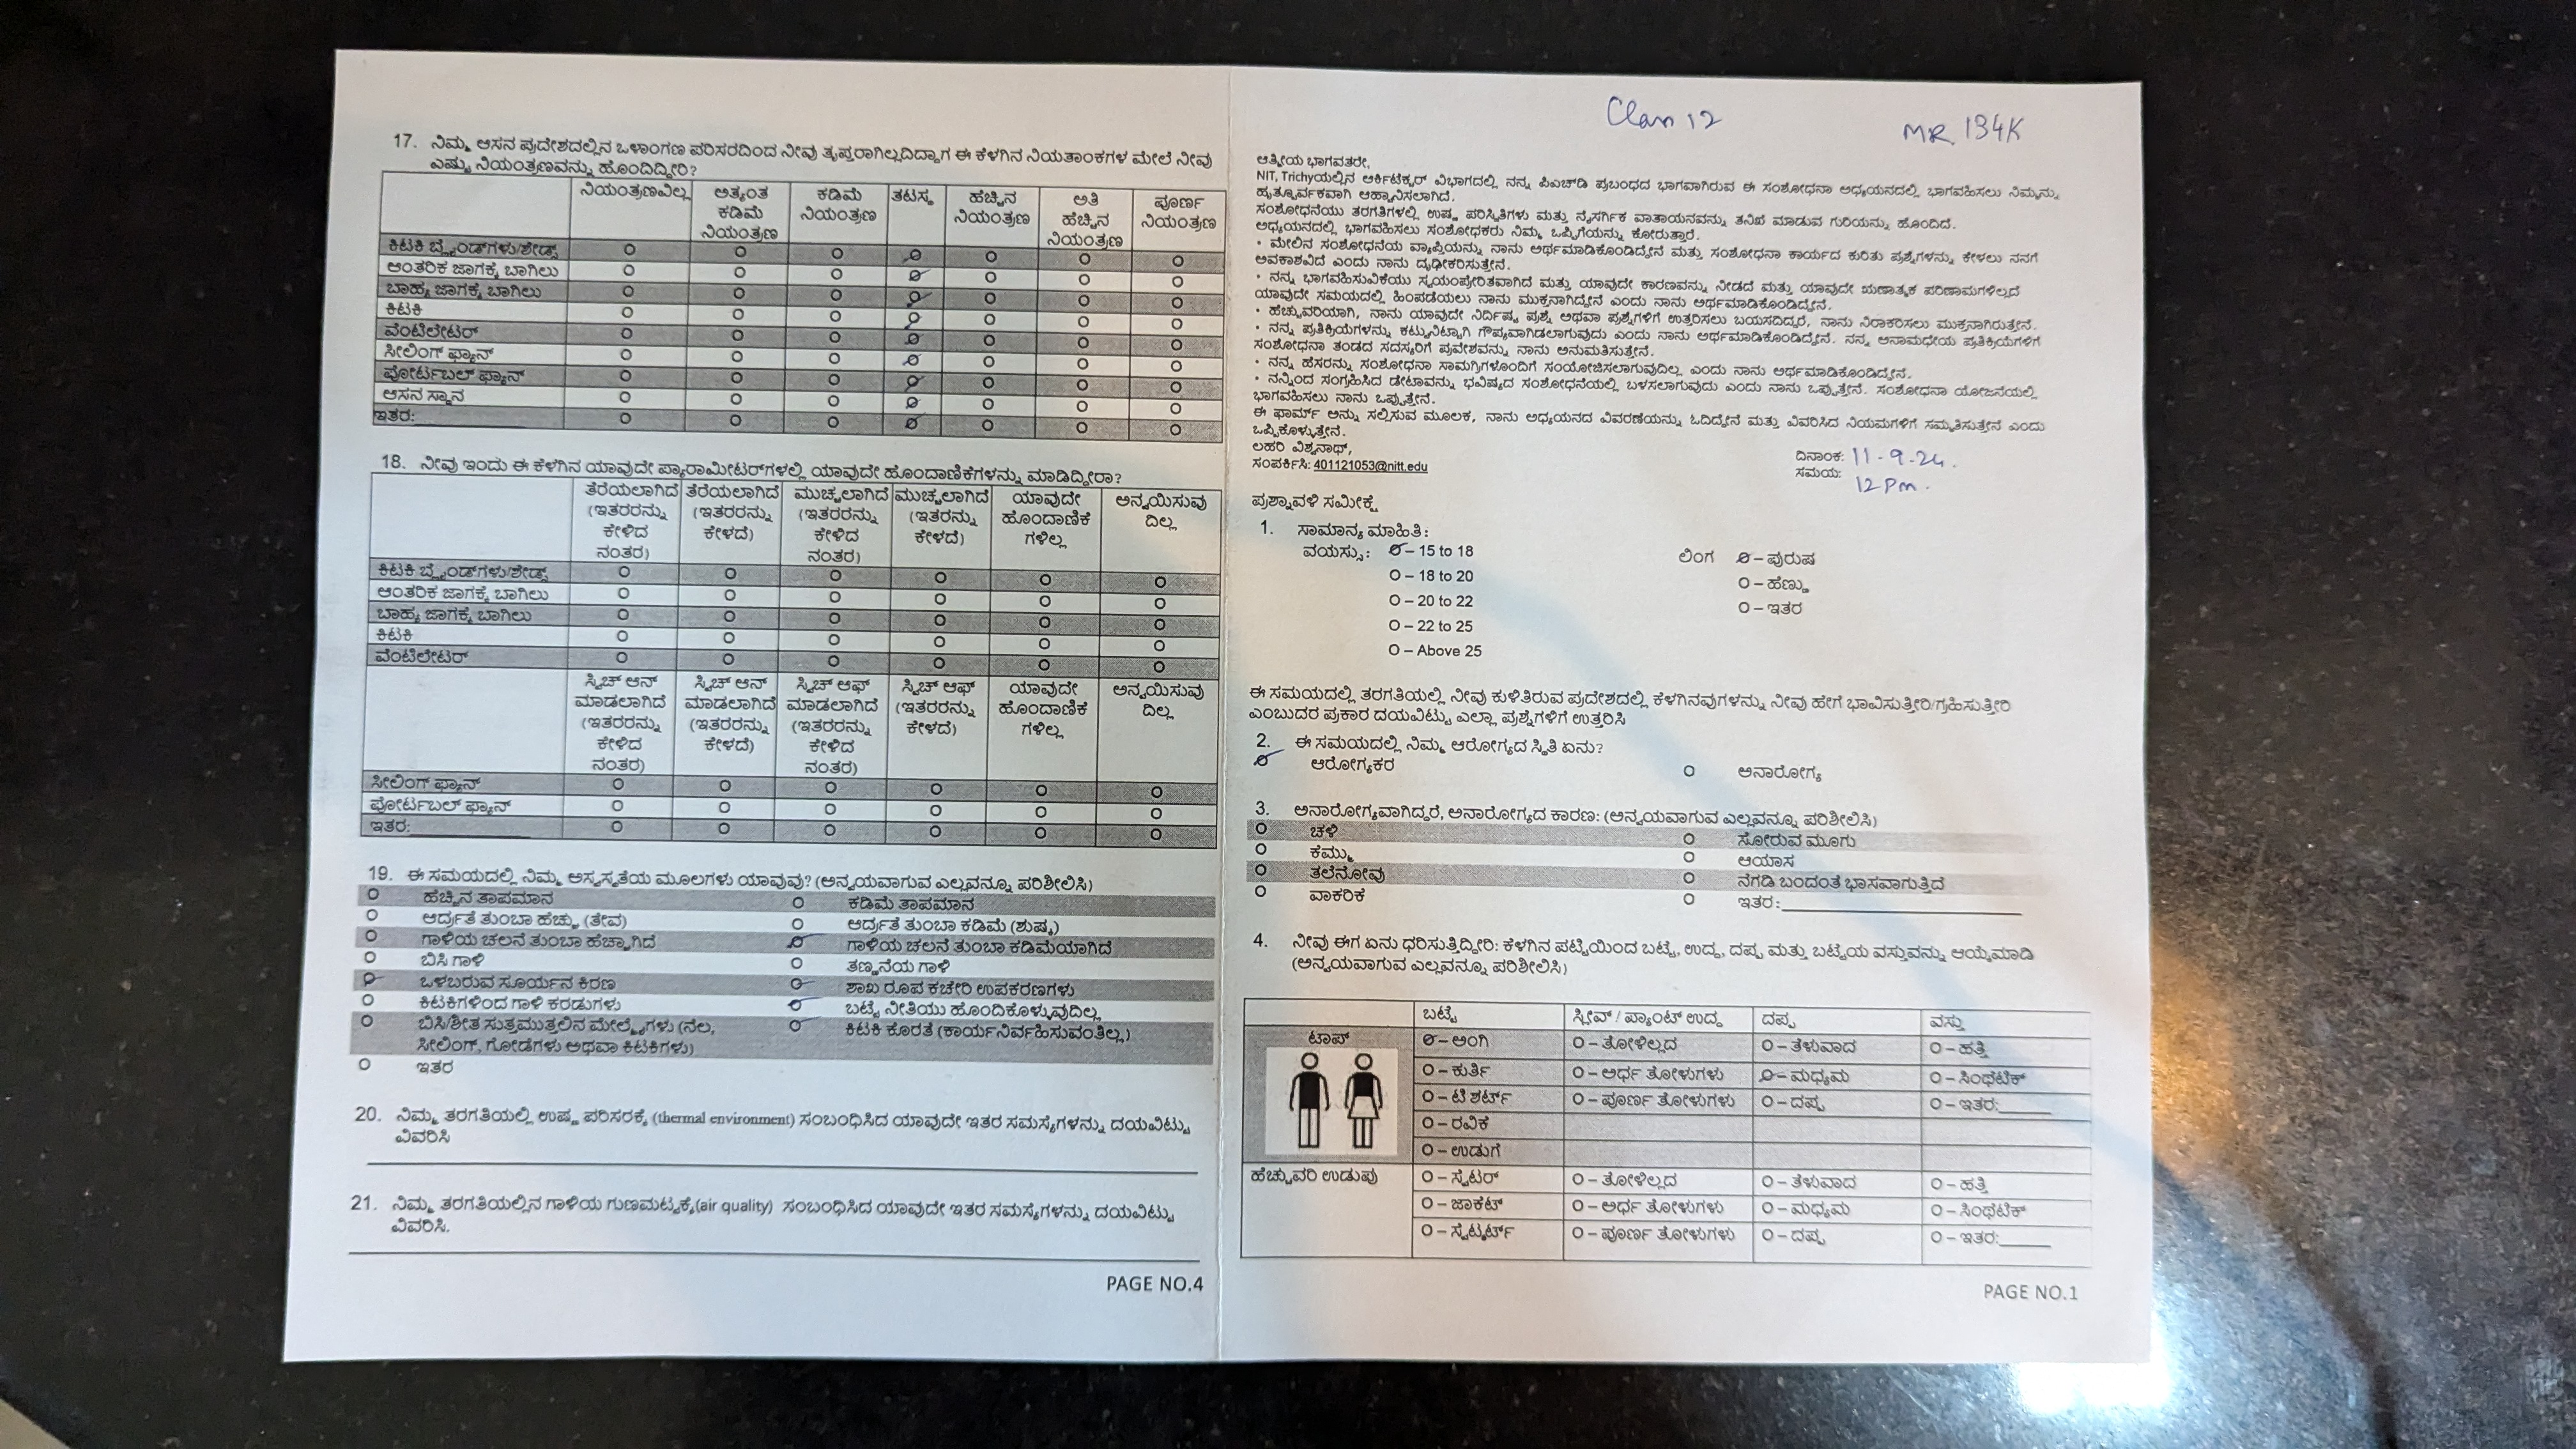 17. ನಿಮ್ಮ ಆಸನ ಪ್ರದೇಶದಲ್ಲಿನ ಒಳಾಂಗಣ ಪರಿಸರದಿಂದ ನೀವು ತೃಪ್ತರಾಗಿಲ್ಲದಿದ್ದಾಗ ಈ ಕೆಳಗಿನ ನಿಯತಾಂಕಗಳ ಮೇಲೆ ನೀವು
ಎಷ್ಟು ನಿಯಂತ್ರಣವನ್ನು ಹೊಂದಿದ್ದೀರಿ?
ನಿಯಂತ್ರಣವಿಲ್ಲ ಅತ್ಯಂತ ಕಡಿಮೆ ನಿಯಂತ್ರಣ ಕಡಿಮೆ ನಿಯಂತ್ರಣ ತಟಸ್ಥ ಹೆಚ್ಚಿನ ನಿಯಂತ್ರಣ ಅತಿ ಹೆಚ್ಚಿನ ನಿಯಂತ್ರಣ ಪೂರ್ಣ ನಿಯಂತ್ರಣ
ಕಿಟಕಿ ಬ್ಲೈಂಡ್‌ಗಳು/ಶೇಡ್ಸ್
ಆಂತರಿಕ ಜಾಗಕ್ಕೆ ಬಾಗಿಲು
ಬಾಹ್ಯ ಜಾಗಕ್ಕೆ ಬಾಗಿಲು
ಕಿಟಕಿ
ವೆಂಟಿಲೇಟರ್
ಸೀಲಿಂಗ್ ಫ್ಯಾನ್
ಪೋರ್ಟಬಲ್ ಫ್ಯಾನ್
ಆಸನ ಸ್ಥಾನ
ಇತರ:
18. ನೀವು ಇಂದು ಈ ಕೆಳಗಿನ ಯಾವುದೇ ಪ್ಯಾರಾಮೀಟರ್‌ಗಳಲ್ಲಿ ಯಾವುದೇ ಹೊಂದಾಣಿಕೆಗಳನ್ನು ಮಾಡಿದ್ದೀರಾ?
ತೆರೆಯಲಾಗಿದೆ (ಇತರರನ್ನು ಕೇಳಿದ ನಂತರ) ತೆರೆಯಲಾಗಿದೆ (ಇತರರನ್ನು ಕೇಳದೆ) ಮುಚ್ಚಲಾಗಿದೆ (ಇತರರನ್ನು ಕೇಳಿದ ನಂತರ) ಮುಚ್ಚಲಾಗಿದೆ (ಇತರರನ್ನು ಕೇಳದೆ) ಯಾವುದೇ ಹೊಂದಾಣಿಕೆ ಗಳಿಲ್ಲ ಅನ್ವಯಿಸುವು ದಿಲ್ಲ
ಕಿಟಕಿ ಬ್ಲೈಂಡ್‌ಗಳು/ಶೇಡ್ಸ್
ಆಂತರಿಕ ಜಾಗಕ್ಕೆ ಬಾಗಿಲು
ಬಾಹ್ಯ ಜಾಗಕ್ಕೆ ಬಾಗಿಲು
ಕಿಟಕಿ
ವೆಂಟಿಲೇಟರ್
ಸ್ವಿಚ್ ಆನ್ ಮಾಡಲಾಗಿದೆ (ಇತರರನ್ನು ಕೇಳಿದ ನಂತರ) ಸ್ವಿಚ್ ಆನ್ ಮಾಡಲಾಗಿದೆ (ಇತರರನ್ನು ಕೇಳದೆ) ಸ್ವಿಚ್ ಆಫ್ ಮಾಡಲಾಗಿದೆ (ಇತರರನ್ನು ಕೇಳಿದ ನಂತರ) ಸ್ವಿಚ್ ಆಫ್ (ಇತರರನ್ನು ಕೇಳದೆ) ಯಾವುದೇ ಹೊಂದಾಣಿಕೆ ಗಳಿಲ್ಲ ಅನ್ವಯಿಸುವು ದಿಲ್ಲ
ಸೀಲಿಂಗ್ ಫ್ಯಾನ್
ಪೋರ್ಟಬಲ್ ಫ್ಯಾನ್
ಇತರ:
19. ಈ ಸಮಯದಲ್ಲಿ ನಿಮ್ಮ ಅಸ್ವಸ್ಥತೆಯ ಮೂಲಗಳು ಯಾವುವು? (ಅನ್ವಯವಾಗುವ ಎಲ್ಲವನ್ನೂ ಪರಿಶೀಲಿಸಿ)
ಹೆಚ್ಚಿನ ತಾಪಮಾನ ಕಡಿಮೆ ತಾಪಮಾನ
ಆರ್ದ್ರತೆ ತುಂಬಾ ಹೆಚ್ಚು (ತೇವ) ಆರ್ದ್ರತೆ ತುಂಬಾ ಕಡಿಮೆ (ಶುಷ್ಕ)
ಗಾಳಿಯ ಚಲನೆ ತುಂಬಾ ಹೆಚ್ಚಾಗಿದೆ ಗಾಳಿಯ ಚಲನೆ ತುಂಬಾ ಕಡಿಮೆಯಾಗಿದೆ
ಬಿಸಿ ಗಾಳಿ ತಣ್ಣನೆಯ ಗಾಳಿ
ಒಳಬರುವ ಸೂರ್ಯನ ಕಿರಣ ಶಾಖ ರೂಪ ಕಚೇರಿ ಉಪಕರಣಗಳು
ಕಿಟಕಿಗಳಿಂದ ಗಾಳಿ ಕರಡುಗಳು ಬಟ್ಟೆ ನೀತಿಯು ಹೊಂದಿಕೊಳ್ಳುವುದಿಲ್ಲ
ಬಿಸಿ/ಶೀತ ಸುತ್ತಮುತ್ತಲಿನ ಮೇಲ್ಮೈಗಳು (ನೆಲ, ಕಿಟಕಿ ಕೊರತೆ (ಕಾರ್ಯನಿರ್ವಹಿಸುವಂತಿಲ್ಲ)
ಸೀಲಿಂಗ್, ಗೋಡೆಗಳು ಅಥವಾ ಕಿಟಕಿಗಳು)
ಇತರ
20. ನಿಮ್ಮ ತರಗತಿಯಲ್ಲಿ ಉಷ್ಣ ಪರಿಸರಕ್ಕೆ (thermal environment) ಸಂಬಂಧಿಸಿದ ಯಾವುದೇ ಇತರ ಸಮಸ್ಯೆಗಳನ್ನು ದಯವಿಟ್ಟು
ವಿವರಿಸಿ
21. ನಿಮ್ಮ ತರಗತಿಯಲ್ಲಿನ ಗಾಳಿಯ ಗುಣಮಟ್ಟಕ್ಕೆ(air quality) ಸಂಬಂಧಿಸಿದ ಯಾವುದೇ ಇತರ ಸಮಸ್ಯೆಗಳನ್ನು ದಯವಿಟ್ಟು
ವಿವರಿಸಿ.
PAGE NO.4
Class 12 MR 134K
ಆತ್ಮೀಯ ಭಾಗವತರೇ,
NIT, Trichyಯಲ್ಲಿನ ಆರ್ಕಿಟೆಕ್ಚರ್ ವಿಭಾಗದಲ್ಲಿ ನನ್ನ ಪಿಎಚ್‌ಡಿ ಪ್ರಬಂಧದ ಭಾಗವಾಗಿರುವ ಈ ಸಂಶೋಧನಾ ಅಧ್ಯಯನದಲ್ಲಿ ಭಾಗವಹಿಸಲು ನಿಮ್ಮನ್ನು
ಹೃತ್ಪೂರ್ವಕವಾಗಿ ಆಹ್ವಾನಿಸಲಾಗಿದೆ.
ಸಂಶೋಧನೆಯು ತರಗತಿಗಳಲ್ಲಿ ಉಷ್ಣ ಪರಿಸ್ಥಿತಿಗಳು ಮತ್ತು ನೈಸರ್ಗಿಕ ವಾತಾಯನವನ್ನು ತನಿಖೆ ಮಾಡುವ ಗುರಿಯನ್ನು ಹೊಂದಿದೆ.
ಅಧ್ಯಯನದಲ್ಲಿ ಭಾಗವಹಿಸಲು ಸಂಶೋಧಕರು ನಿಮ್ಮ ಒಪ್ಪಿಗೆಯನ್ನು ಕೋರುತ್ತಾರೆ.
• ಮೇಲಿನ ಸಂಶೋಧನೆಯ ವ್ಯಾಪ್ತಿಯನ್ನು ನಾನು ಅರ್ಥಮಾಡಿಕೊಂಡಿದ್ದೇನೆ ಮತ್ತು ಸಂಶೋಧನಾ ಕಾರ್ಯದ ಕುರಿತು ಪ್ರಶ್ನೆಗಳನ್ನು ಕೇಳಲು ನನಗೆ
ಅವಕಾಶವಿದೆ ಎಂದು ನಾನು ದೃಢೀಕರಿಸುತ್ತೇನೆ.
• ನನ್ನ ಭಾಗವಹಿಸುವಿಕೆಯು ಸ್ವಯಂಪ್ರೇರಿತವಾಗಿದೆ ಮತ್ತು ಯಾವುದೇ ಕಾರಣವನ್ನು ನೀಡದೆ ಮತ್ತು ಯಾವುದೇ ಋಣಾತ್ಮಕ ಪರಿಣಾಮಗಳಿಲ್ಲದೆ
ಯಾವುದೇ ಸಮಯದಲ್ಲಿ ಹಿಂಪಡೆಯಲು ನಾನು ಮುಕ್ತನಾಗಿದ್ದೇನೆ ಎಂದು ನಾನು ಅರ್ಥಮಾಡಿಕೊಂಡಿದ್ದೇನೆ.
• ಹೆಚ್ಚುವರಿಯಾಗಿ, ನಾನು ಯಾವುದೇ ನಿರ್ದಿಷ್ಟ ಪ್ರಶ್ನೆ ಅಥವಾ ಪ್ರಶ್ನೆಗಳಿಗೆ ಉತ್ತರಿಸಲು ಬಯಸದಿದ್ದರೆ, ನಾನು ನಿರಾಕರಿಸಲು ಮುಕ್ತನಾಗಿರುತ್ತೇನೆ.
• ನನ್ನ ಪ್ರತಿಕ್ರಿಯೆಗಳನ್ನು ಕಟ್ಟುನಿಟ್ಟಾಗಿ ಗೌಪ್ಯವಾಗಿಡಲಾಗುವುದು ಎಂದು ನಾನು ಅರ್ಥಮಾಡಿಕೊಂಡಿದ್ದೇನೆ. ನನ್ನ ಅನಾಮಧೇಯ ಪ್ರತಿಕ್ರಿಯೆಗಳಿಗೆ
ಸಂಶೋಧನಾ ತಂಡದ ಸದಸ್ಯರಿಗೆ ಪ್ರವೇಶವನ್ನು ನಾನು ಅನುಮತಿಸುತ್ತೇನೆ.
• ನನ್ನ ಹೆಸರನ್ನು ಸಂಶೋಧನಾ ಸಾಮಗ್ರಿಗಳೊಂದಿಗೆ ಸಂಯೋಜಿಸಲಾಗುವುದಿಲ್ಲ ಎಂದು ನಾನು ಅರ್ಥಮಾಡಿಕೊಂಡಿದ್ದೇನೆ.
• ನನ್ನಿಂದ ಸಂಗ್ರಹಿಸಿದ ಡೇಟಾವನ್ನು ಭವಿಷ್ಯದ ಸಂಶೋಧನೆಯಲ್ಲಿ ಬಳಸಲಾಗುವುದು ಎಂದು ನಾನು ಒಪ್ಪುತ್ತೇನೆ. ಸಂಶೋಧನಾ ಯೋಜನೆಯಲ್ಲಿ
ಭಾಗವಹಿಸಲು ನಾನು ಒಪ್ಪುತ್ತೇನೆ.
ಈ ಫಾರ್ಮ್ ಅನ್ನು ಸಲ್ಲಿಸುವ ಮೂಲಕ, ನಾನು ಅಧ್ಯಯನದ ವಿವರಣೆಯನ್ನು ಓದಿದ್ದೇನೆ ಮತ್ತು ವಿವರಿಸಿದ ನಿಯಮಗಳಿಗೆ ಸಮ್ಮತಿಸುತ್ತೇನೆ ಎಂದು
ಒಪ್ಪಿಕೊಳ್ಳುತ್ತೇನೆ.
ಲಹರಿ ವಿಶ್ವನಾಥ್,
ಸಂಪರ್ಕಿಸಿ: 401121053@nitt.edu
ದಿನಾಂಕ: 11-9-24.
ಸಮಯ: 12 Pm.
ಪ್ರಶ್ನಾವಳಿ ಸಮೀಕ್ಷೆ
1. ಸಾಮಾನ್ಯ ಮಾಹಿತಿ:
ವಯಸ್ಸು: O – 15 to 18 ಲಿಂಗ O – ಪುರುಷ
O – 18 to 20 O – ಹೆಣ್ಣು
O – 20 to 22 O – ಇತರ
O – 22 to 25
O – Above 25
ಈ ಸಮಯದಲ್ಲಿ ತರಗತಿಯಲ್ಲಿ ನೀವು ಕುಳಿತಿರುವ ಪ್ರದೇಶದಲ್ಲಿ ಕೆಳಗಿನವುಗಳನ್ನು ನೀವು ಹೇಗೆ ಭಾವಿಸುತ್ತೀರಿ/ಗ್ರಹಿಸುತ್ತೀರಿ
ಎಂಬುದರ ಪ್ರಕಾರ ದಯವಿಟ್ಟು ಎಲ್ಲಾ ಪ್ರಶ್ನೆಗಳಿಗೆ ಉತ್ತರಿಸಿ
2. ಈ ಸಮಯದಲ್ಲಿ ನಿಮ್ಮ ಆರೋಗ್ಯದ ಸ್ಥಿತಿ ಏನು?
ಆರೋಗ್ಯಕರ ಅನಾರೋಗ್ಯ
3. ಅನಾರೋಗ್ಯವಾಗಿದ್ದರೆ, ಅನಾರೋಗ್ಯದ ಕಾರಣ: (ಅನ್ವಯವಾಗುವ ಎಲ್ಲವನ್ನೂ ಪರಿಶೀಲಿಸಿ)
ಚಳಿ ಸೋರುವ ಮೂಗು
ಕೆಮ್ಮು ಆಯಾಸ
ತಲೆನೋವು ನೆಗಡಿ ಬಂದಂತೆ ಭಾಸವಾಗುತ್ತಿದೆ
ವಾಕರಿಕೆ ಇತರ:
4. ನೀವು ಈಗ ಏನು ಧರಿಸುತ್ತಿದ್ದೀರಿ: ಕೆಳಗಿನ ಪಟ್ಟಿಯಿಂದ ಬಟ್ಟೆ, ಉದ್ದ, ದಪ್ಪ ಮತ್ತು ಬಟ್ಟೆಯ ವಸ್ತುವನ್ನು ಆಯ್ಕೆಮಾಡಿ
(ಅನ್ವಯವಾಗುವ ಎಲ್ಲವನ್ನೂ ಪರಿಶೀಲಿಸಿ)
ಬಟ್ಟೆ ಸ್ಲೀವ್ / ಪ್ಯಾಂಟ್ ಉದ್ದ ದಪ್ಪ ವಸ್ತು
ಟಾಪ್ O – ಅಂಗಿ O – ತೋಳಿಲ್ಲದ O – ತೆಳುವಾದ O – ಹತ್ತಿ
O – ಕುರ್ತಿ O – ಅರ್ಧ ತೋಳುಗಳು O – ಮಧ್ಯಮ O – ಸಿಂಥೆಟಿಕ್
O – ಟಿ ಶರ್ಟ್ O – ಪೂರ್ಣ ತೋಳುಗಳು O – ದಪ್ಪ O – ಇತರ:
O – ರವಿಕೆ
O – ಉಡುಗೆ
ಹೆಚ್ಚುವರಿ ಉಡುಪು O – ಸ್ವೆಟರ್ O – ತೋಳಿಲ್ಲದ O – ತೆಳುವಾದ O – ಹತ್ತಿ
O – ಜಾಕೆಟ್ O – ಅರ್ಧ ತೋಳುಗಳು O – ಮಧ್ಯಮ O – ಸಿಂಥೆಟಿಕ್
O – ಸ್ವೆಟ್ಶರ್ಟ್ O – ಪೂರ್ಣ ತೋಳುಗಳು O – ದಪ್ಪ O – ಇತರ:
PAGE NO.1